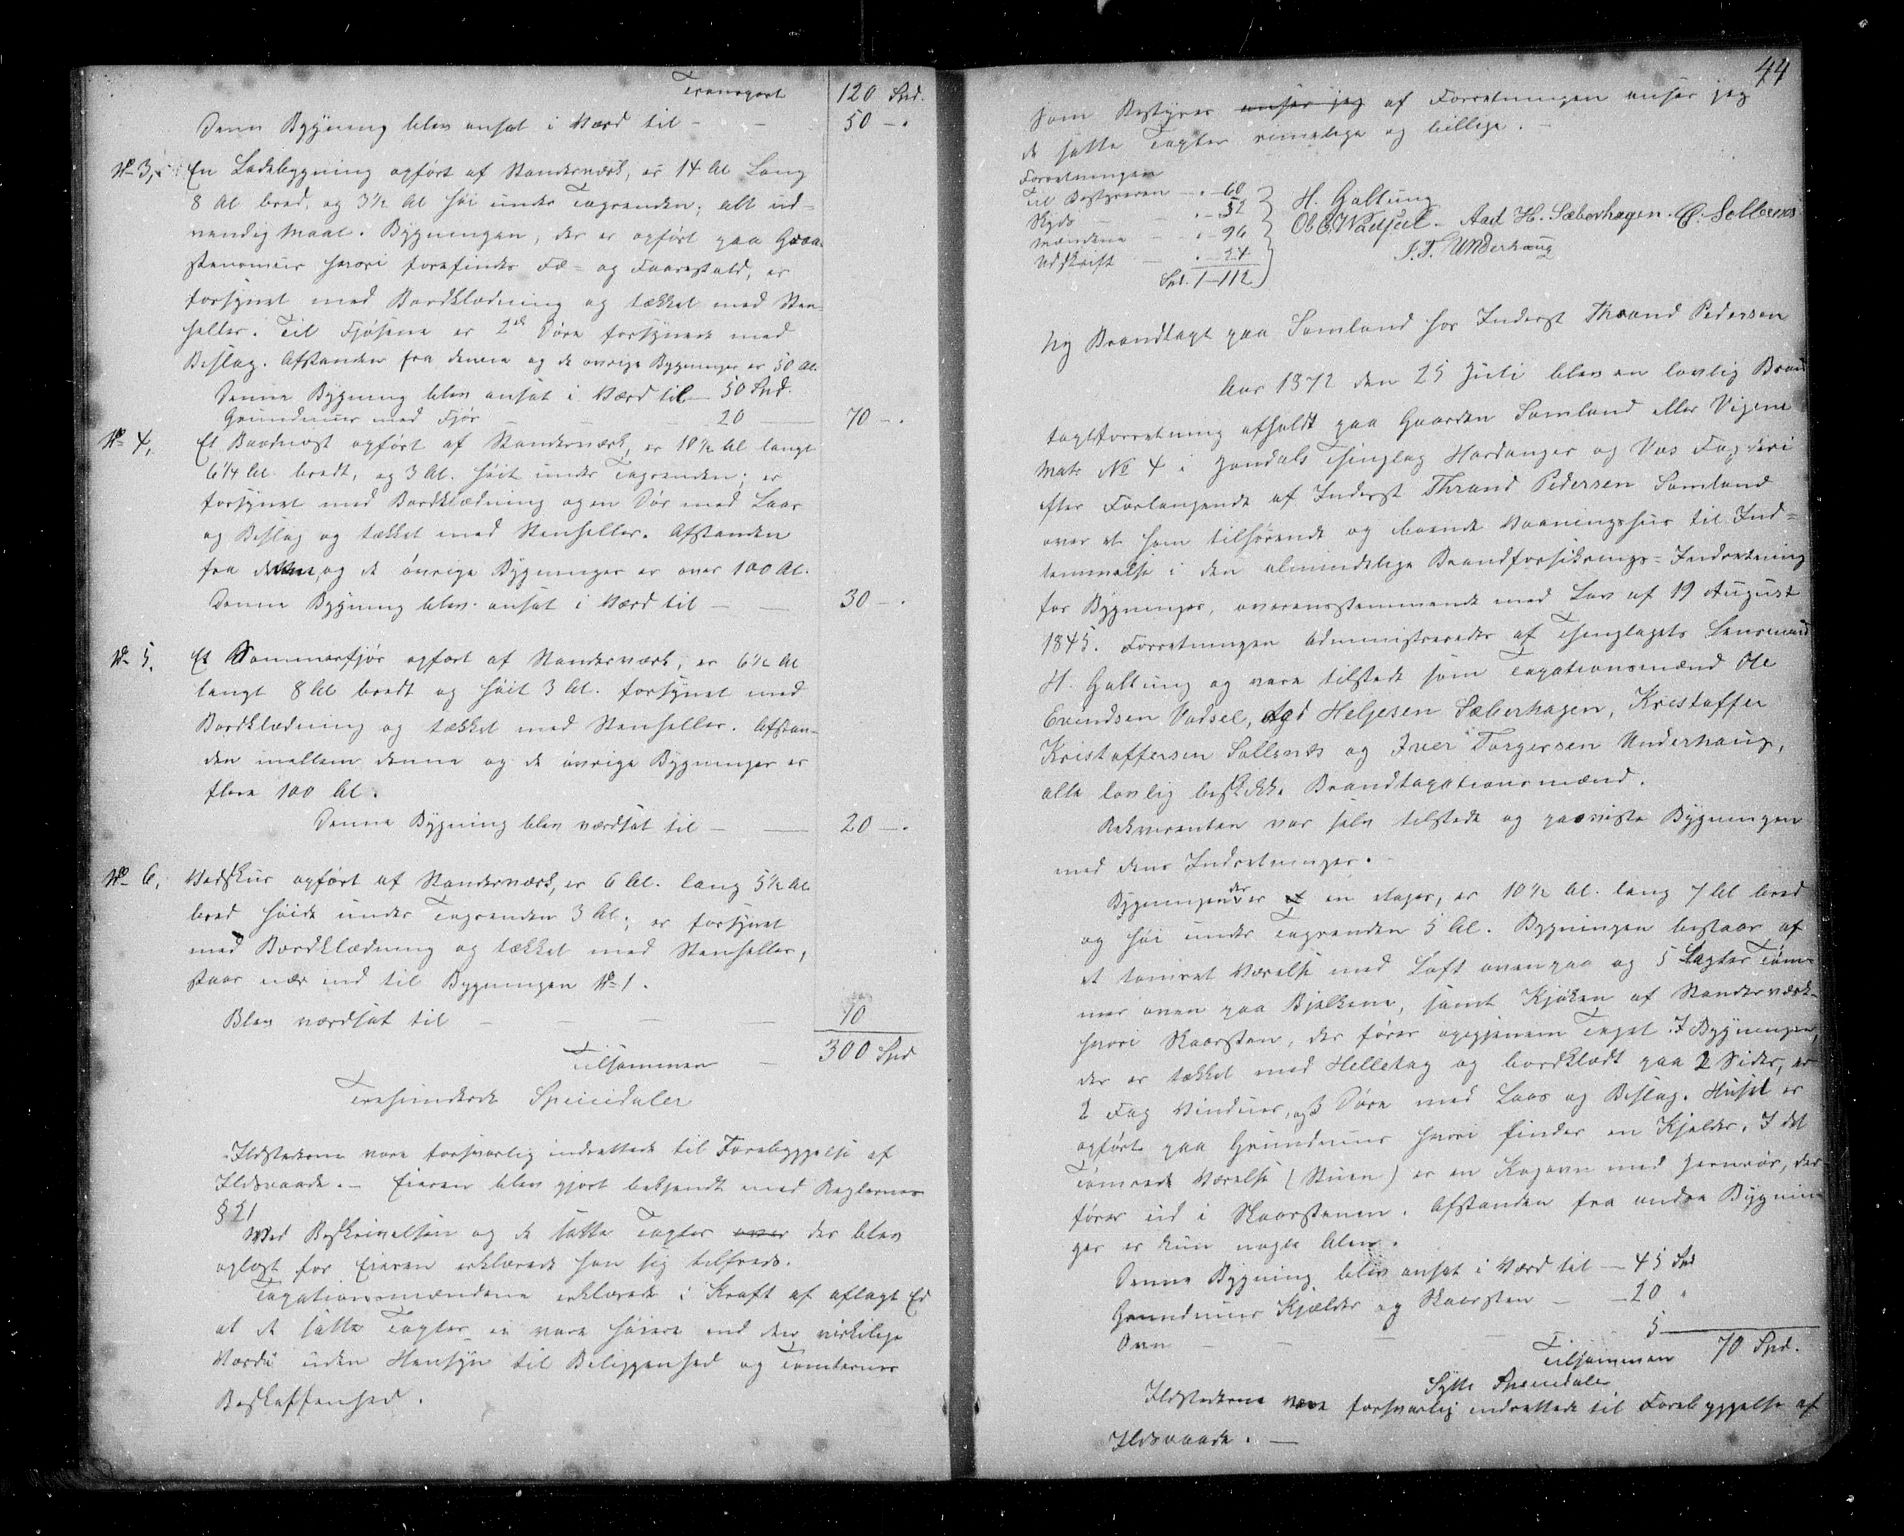 Transport 120 Spd.
Denne Bygning blev ansat i Værd til — — 50 — .
No 3, En Ladebygning opført af Standerværk, er 14 Al Lang
8 Al bred, og 3½ Al høi under Tagrenden; alt ud-
vendig Maal. Bygningen, der er opført paa Graa-
stensmuur hvori forefindes Fæ- og Faarestald, er
forsynet med Bordklædning og tækket med Sten-
heller. Til Fjøsene er 2de Døre forsynede med
Beslag. Afstanden fra denne og de øvrige Bygninger er 50 Al.
Denne Bygning blev ansat i Værd til — 50 Spd.
Grundmuur med Fjøs — — 20 — 70 — .
No 4, Et Baadnøst opført af Standerværk, er 18½ Al langt
6¼ Al. bredt, og 3 Al. høit under Tagrenden; er
forsynet med Bordklædning og en Dør med Laas
og Beslag og tækket med Stenheller. Afstanden
fra dette, og de øvrige Bygninger er over 100 Al.
Denne Bygning blev ansat i Værd til — — 30 — .
No 5. Et Sommerfjøs opført af Standerværk, er 6½ Al
langt 8 Al bredt og høit 3 Al. forsynet med
Bordklædning og tækket med Stenheller. Afstan-
den mellem denne og de øvrige Bygninger er
flere 100 Al.
Denne Bygning blev værdsat til — — 20 — .
No 6, Vedskur opført af Standerværk, er 6 Al. lang 5½ Al.
bred høide under Tagrenden 3 Al; er forsynet
med Bordklædning og tækket med Stenheller,
staar nær ind til Bygningen No 1.
Blev værdsat til — — — — 10
Tilsammen — 300 Spd
Trehundrede Speciedaler
Ildstederne vare forsvarlig indrettede til Forebyggelse af
Ildsvaade. — Eieren blev gjort bekjendt med Reglernes
§ 21
Med Beskrivelsen og de satte Taxter over der blev
oplæst for Eieren erklærede han sig tilfreds.
Taxationsmændene erklærede i Kraft af aflagt Ed
at de satte Taxter ei vare høiere end den virkelige
Værdi uden Hensyn til Beliggenhed og Tomternes
Beskaffenhed.
44
Som Bestyrer anser jeg af Forretningen anser jeg
de satte Taxter rimelige og billige. —
Forretningen
Til Bestyreren — " — 60
Skyds — — " — 52
Mændene — " — 96
Udskrift — " — 24
Spd. 1 — 112
H. Galtung
Ole E. Vadsel. Aad H. Sæberhagen. C. Sollesnæs
I. T. Underhaug
Ny Brandtaxt paa Samland hos Inderst Thrond Pedersen
Aar 1872 den 25 Juli blev en lovlig Brand
taxtforretning afholdt paa Gaarden Samland eller Vigene
Matr No 4 i Jondals Thinglag Hardanger og Vos Fogderi
efter Forlangende af Inderst Thrand Pedersen Samland
over et ham tilhørende og boende Vaaningshus til Ind-
lemmelse i den almindelige Brandforsikrings-Indretning
for Bygninger, overensstemmende med Lov af 19 August
1845. Forretningen administreredes af Thinglagets Lensmand
H. Galtung og vare tilstede som Taxationsmænd Ole
Evindsen Vadsel, Aad Heljesen Sæberhagen, Kristoffer
Kristoffersen Sollesnæs og Iver Torgersen Underhaug,
alle lovlig beskikke Brandtaxationsmænd.
Rekvirenten var selv tilstede og paaviste Bygningen
med dens Indretninger. —
Bygningen der er et en etages, er 10½ Al. lang 7 Al bred
og høi under Tagrenden 5 Al. Bygningen bestaar af
et tømret Værelse med Loft ovenpaa og 5 Lægter Tøm-
mer oven paa Bjelkene, samt Kjøken af Standerværk
hvori Skorsten, der fører opigjennem Taget. I Bygningen,
der er tækket med Helletag og bordklædt paa 2 Sider, er
2 Fag Vinduer, og 3 Døre med Laas og Beslag. Huset er
opført paa Grundmuur hvori findes en Kjelder. I det
Tømrede Værelse (Stuen) er en Kogovn med Jernrør, der
fører ud i Skorstenen. Afstanden fra andre Bygnin-
ger er kun nogle Alen.
Denne Bygning blev ansat i Værd til — 45 Spd
Grundmuur Kjælder og Skorsten — — 20 "
Ovn — — — 5
Tilsammen 70 Spd.
Sytti Speciedaler
Ildstederne vare forsvarlig indrettede til Forebyggelse af
Ildsvaade. —